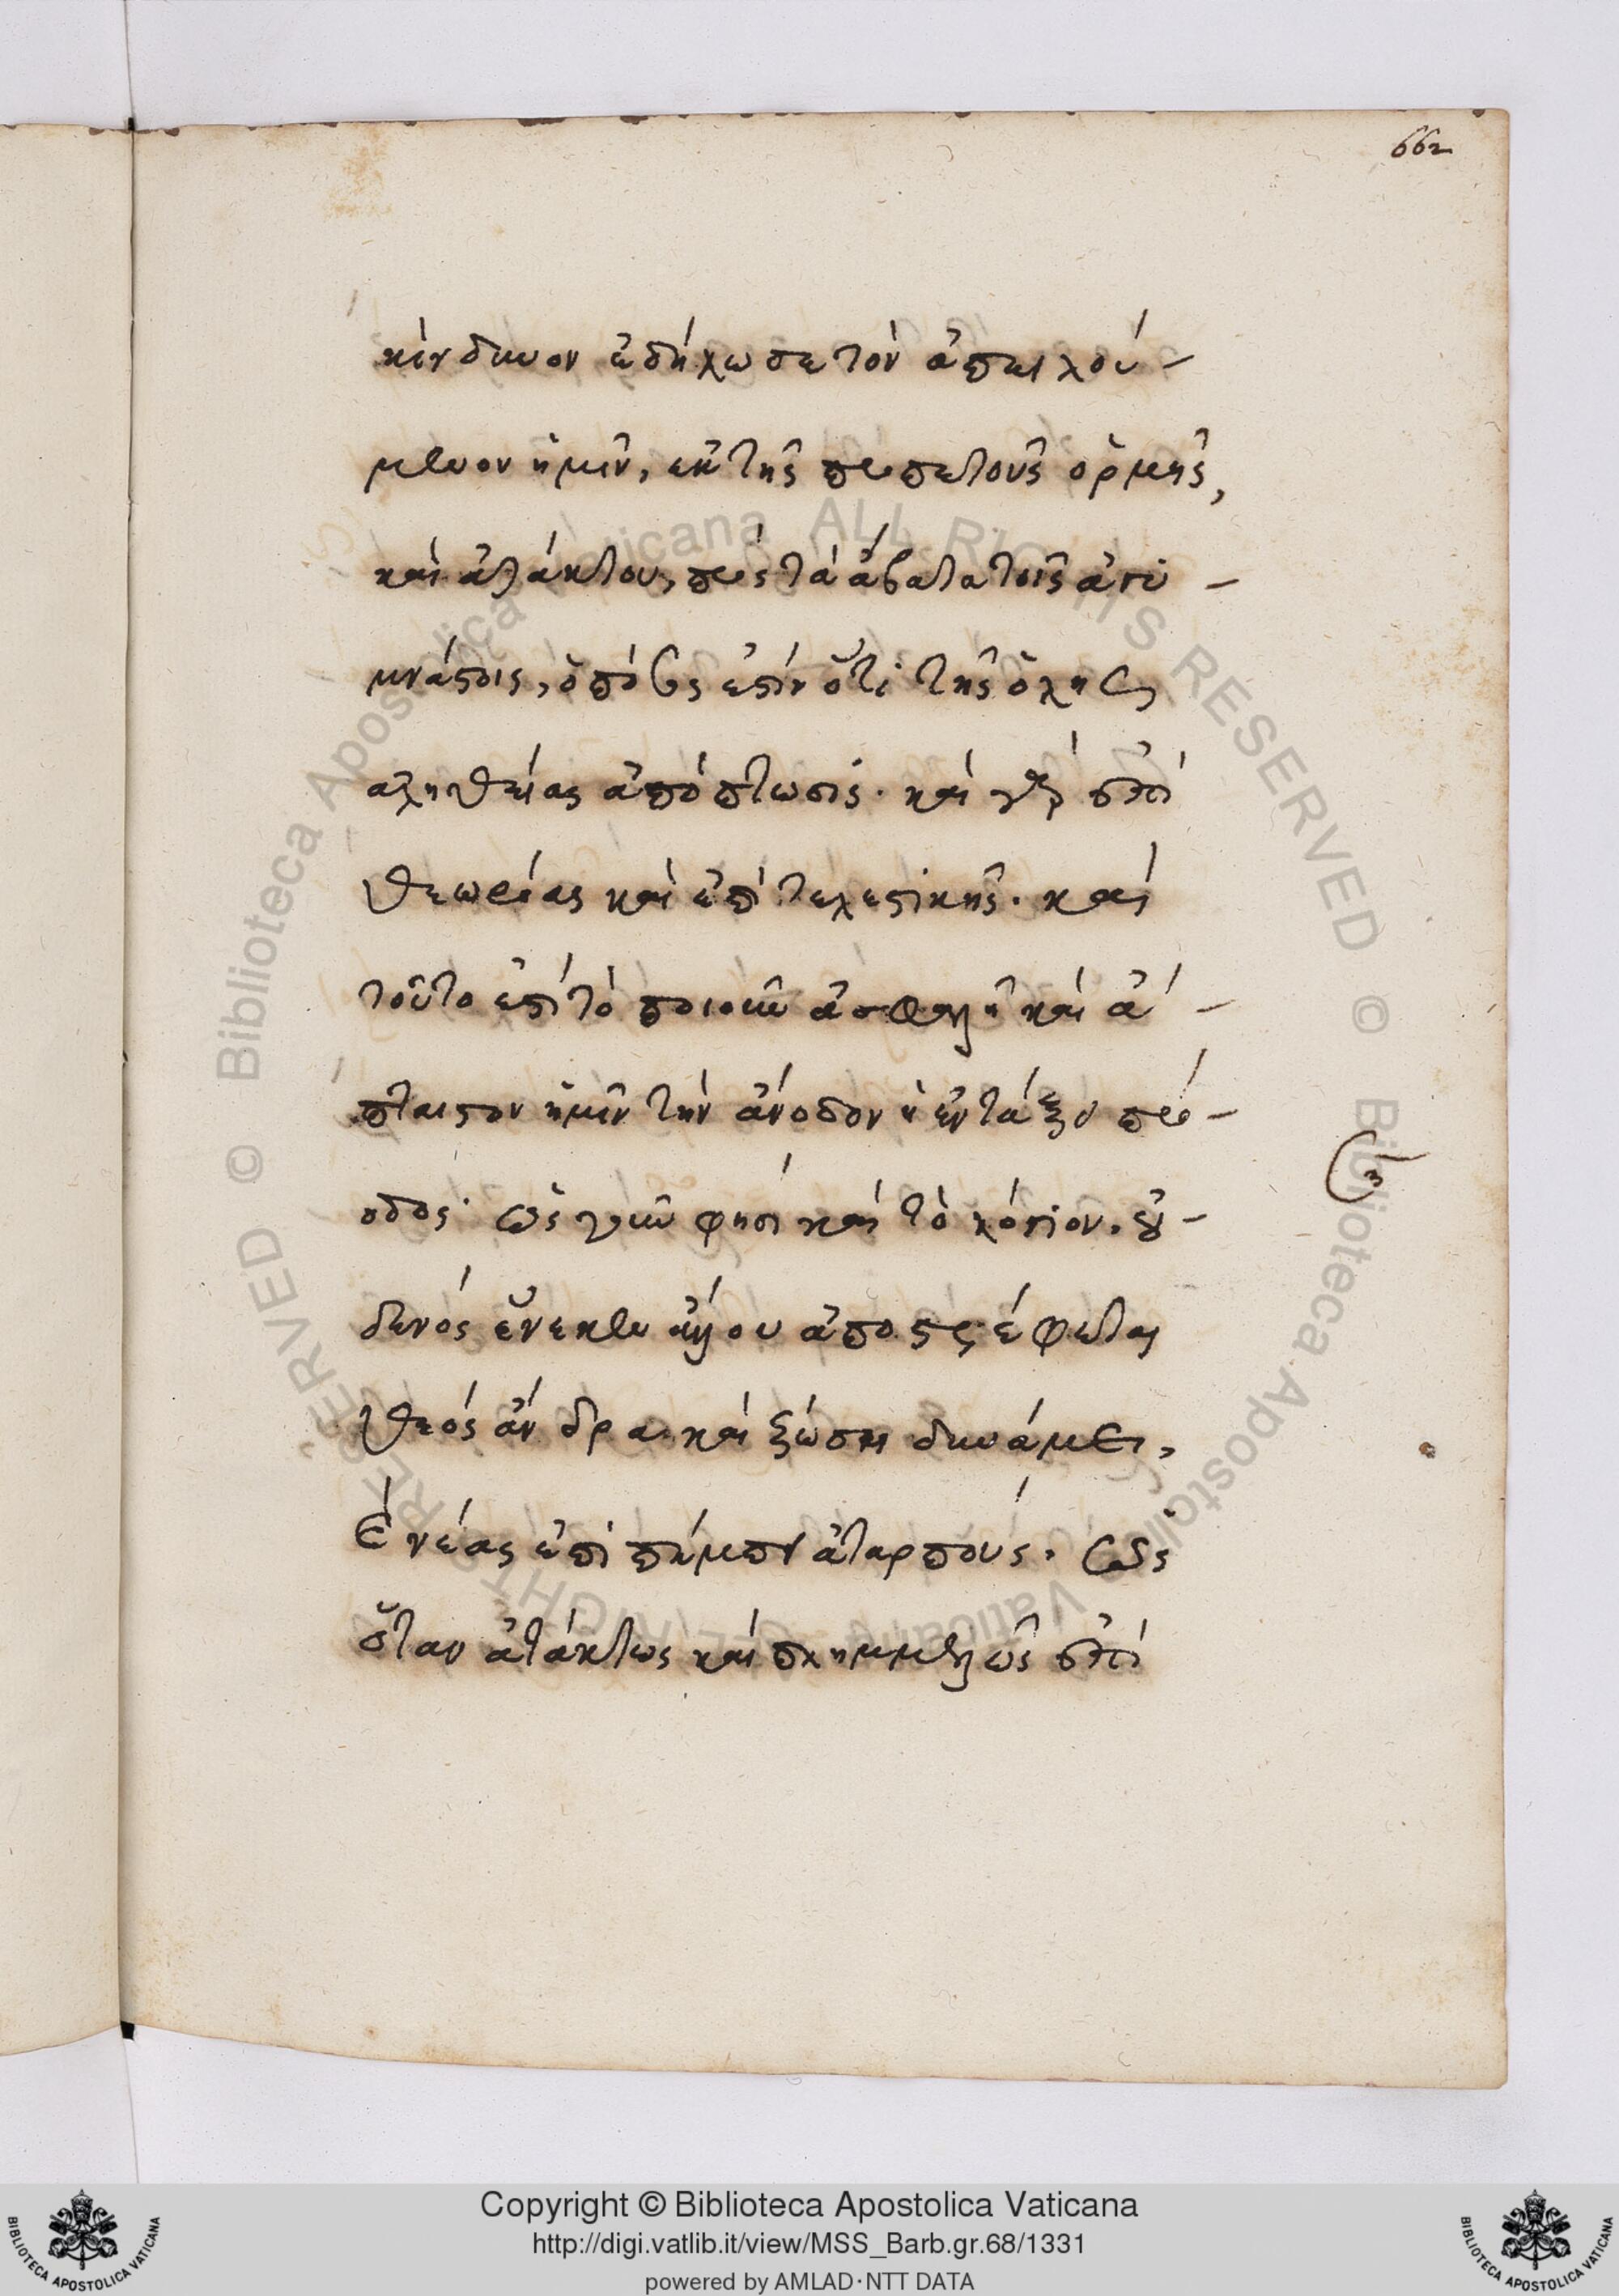 662
κίνδυνον ἐδήλωσε τὸν ἀπειλού-
μενον ἡμῖν, ἐκ τῆς προπετοῦς ὁρμῆς,
καὶ ἀτάκτου, πρὸς τὰ ἄβατα τοῖς ἀγυ-
μνάστοις, ὁπότε ἐστὶν ὅτι τῆς ὅλης
ἀληθείας ἀπόπτωσις. καὶ γὰρ ἐπὶ
θεωρίας καὶ ἐπὶ τελεστικῆς. καὶ
τοῦτο ἐστὶ τὸ ποιοῦν ἀσφαλῆ καὶ ἄ-
πταιστον ἡμῖν τὴν ἄνοδον ἡ ἐν τάξει πρό-
οδος. ὡς γοῦν φησὶ καὶ τὸ λόγιον. οὐ-
δενὸς ἕνεκεν ἄλλου ἀποστρέφεται
θεὸς ἄνδρα. καὶ ζώσῃ δυνάμει,
ἐνέας ἐπιπέμπει ἀταρπούς. ὡς
ὅταν ἀτάκτως καὶ πλημμελῶς ἐπὶ
Copyright © Biblioteca Apostolica Vaticana
http://digi.vatlib.it/view/MSS_Barb.gr.68/1331
powered by AMLAD·NTT DATA
BIBLIOTECA APOSTOLICA VATICANA
BIBLIOTECA APOSTOLICA VATICANA
© Biblioteca Apostolica Vaticana ALL RIGHTS RESERVED © Biblioteca Apostolica Vaticana ALL RIGHTS RESERVED